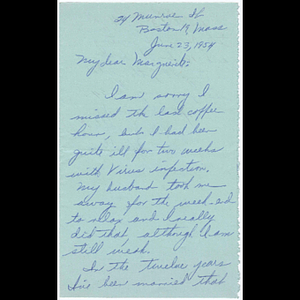 24 Munroe St
Boston 19, Mass
June 23, 1954
My dear Marguerite,
I am sorry I
missed the last coffee
hour, but I had been
quite ill for two weeks
with Virus infection,
my husband took me
away for the week-end
to sleep and I really
did that, although I am
still weak.
In the twelve years
I've been married that